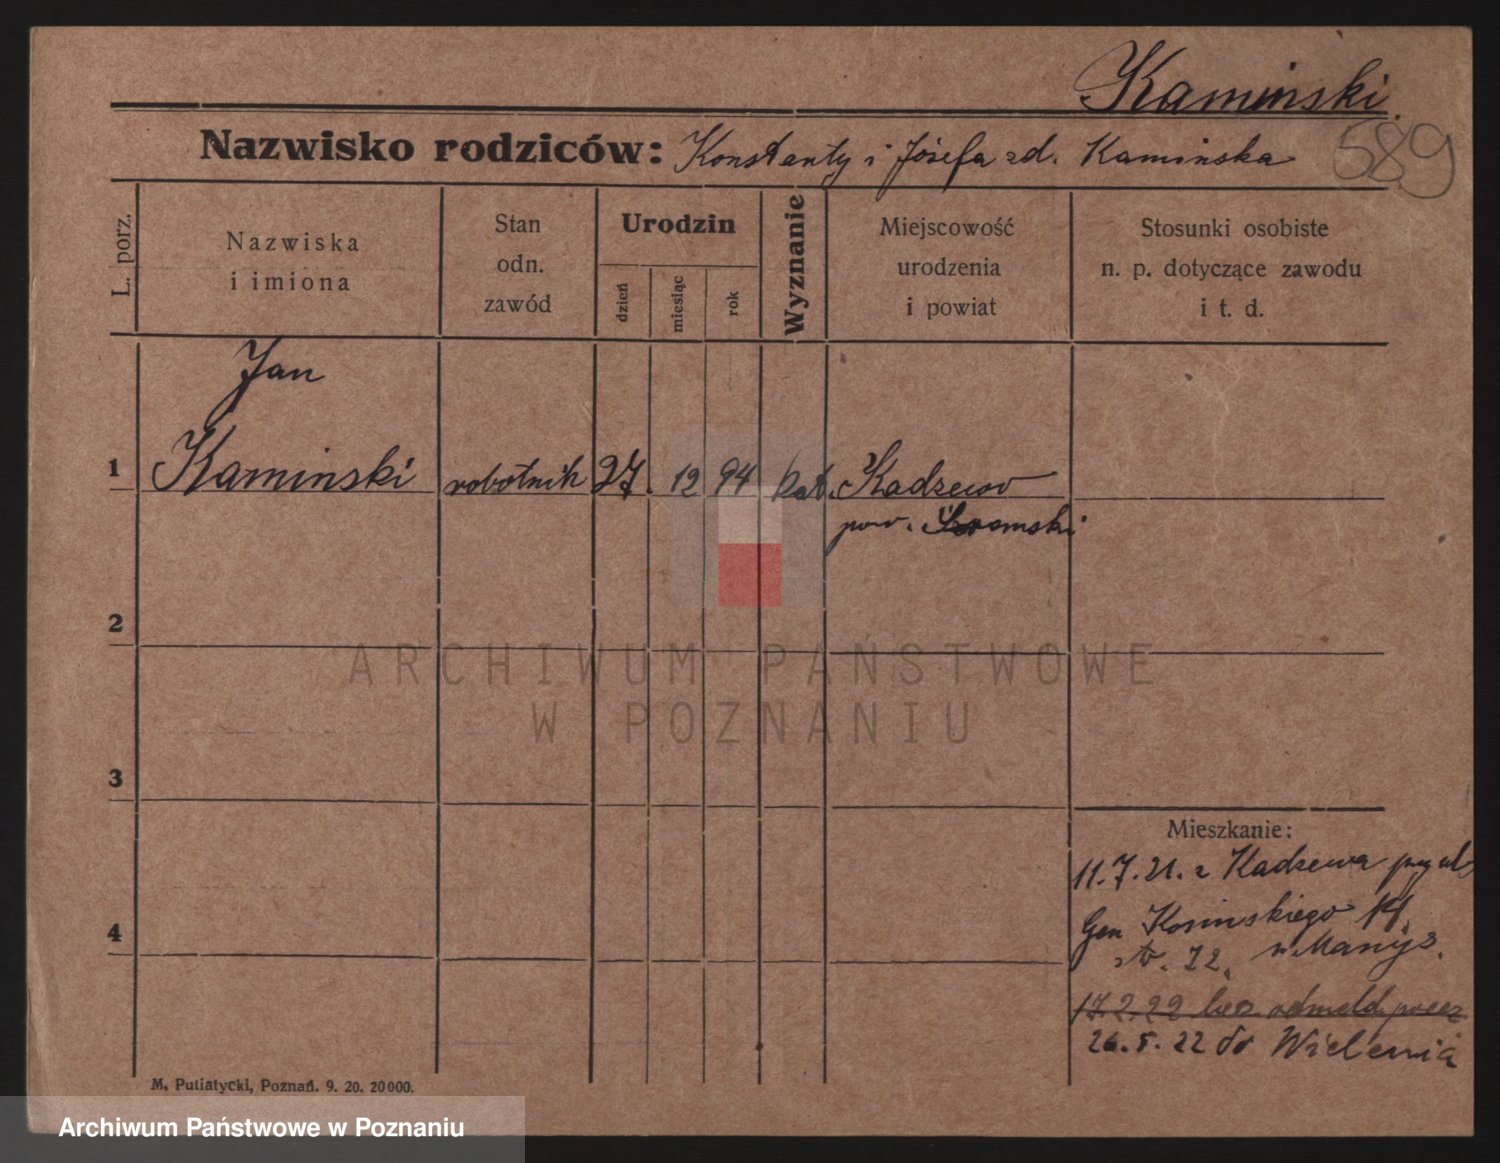 Kaminski
589
Nazwisko rodziców: Konstanty i Józefa zd. Kamińska
L. porz.
Nazwiska
i imiona
Stan
odn.
zawód
Urodzin
dzień
miesiąc
rok
Wyznanie
Miejscowość
urodzenia
i powiat
Stosunki osobiste
n. p. dotyczące zawodu
i t. d.
Jan
1 Kaminski robotnik 27. 12 94 kat. Kadzewo
pow.
2
ARCHIWUM PAŃSTWOWE
W POZNANIU
3
Mieszkanie:
11.7.21. z Kadzewa
4
Gen Kosinskiego 14,
17.2.22 bez odmeld. precz
26.5.22 do Wielenia
M. Putiatycki, Poznań. 9. 20. 20000.
Archiwum Państwowe w Poznaniu